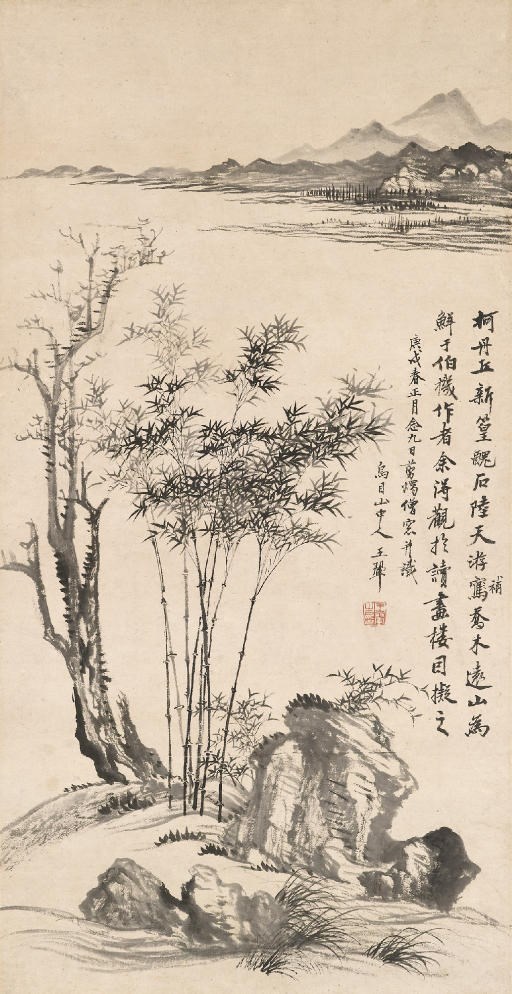 柯丹丘新篁醜石陸天游寫喬木遠山為
補
鮮于伯機作者余得觀於讀畫樓因擬之
庚戌春正月念九日篝燭僧窓并識
烏目山中人王翬